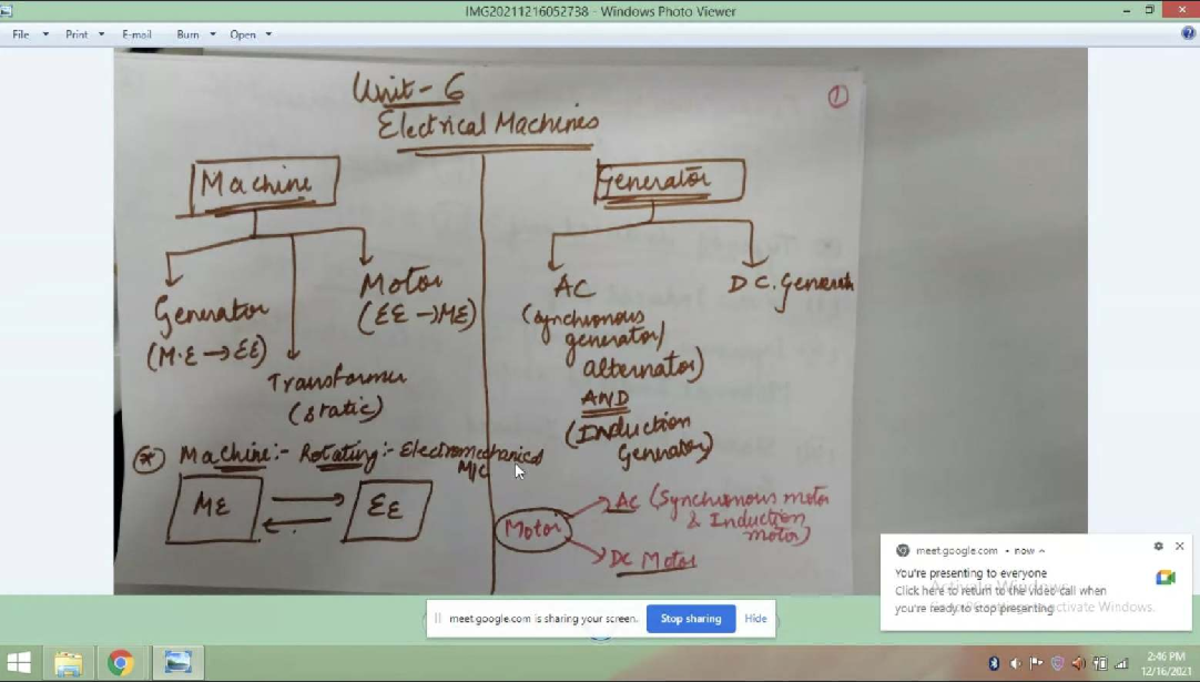 IMG20211216052738 - Windows Photo Viewer
File Print E-mail Burn Open
Unit-6
1
Electrical Machines
Machine
Generator
(M.E → EE)
Transformer
(static)
Motor
(EE → ME)
* Machine:- Rotating:- Electromechanical
M/C
ME
EE
Generator
AC
(Synchronous
generator/
alternator)
AND
(Induction
Generator)
D C. Generat
Motor
AC (Synchronous motor
& Induction
motor)
DC Motor
meet.google.com • now
You're presenting to everyone
Click here to return to the video call when
you're ready to stop presenting
Activate Windows
activate Windows.
meet.google.com is sharing your screen.
Stop sharing
Hide
2:46 PM
12/16/2021